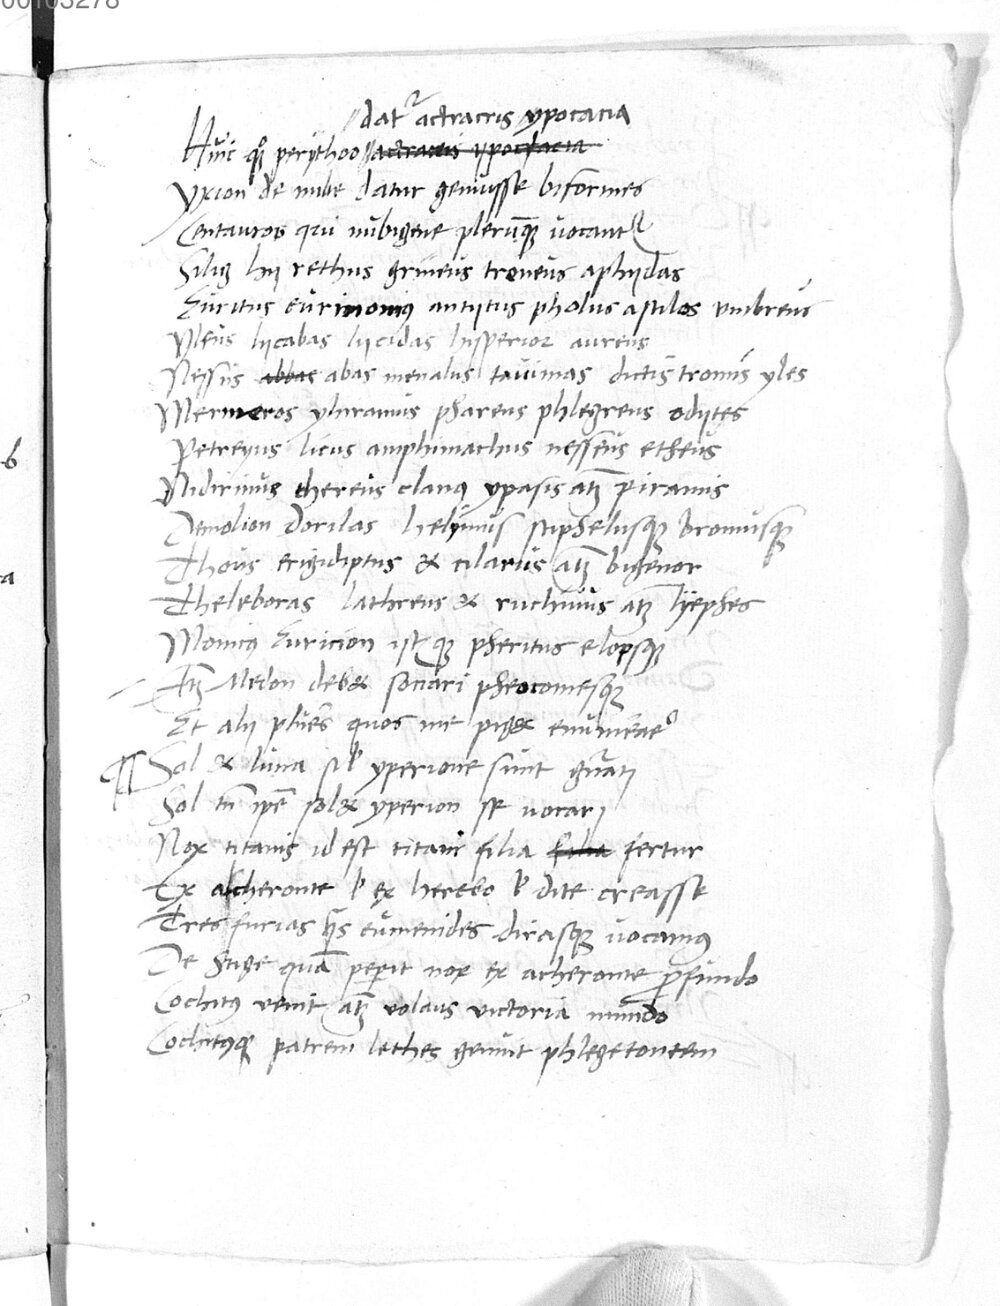 00103278
datr actracris ypotacia
Huic qz perythoo actracris ypoctacia
Yxion de nube datur genuisse biformes
Centauros qui nubigene plerumqz uocantr
Silis hij rethus grineus troneus aphijdas
Euritus eurinomius antijtus pholus astilos umbreus
Pleus lijcabas lijcidas hisperior aureus
Nessus abbas abas menalus tauimas dictis tromis yles
Mermeros yluramus phareus phlegreus odijtes
Petreyus licus amphimachus nesseus etheus
Nidirmus thereus clanis ypasis atqz piramis
Demolion dorilas helymus stiphelusqz bromusqz
Thous erigidiptus & cilarus atqz bigenor
Theleboras lathreus & ruchinus atqz lijephes
Monicus Euricion istqz pheritus elopsqz
Atqz Medon deb& sotiari pheocomesqz
Et alij plures quos me pig& enumerare
Sol & luna sib yperione sunt gnati
Sol tn ipe sol& yperion se uocari
Nox titanis id est titani filia filia fertur
Ex acheronte ul ex herebo ul dite creasse
Tres furias has eumenides dirasqz uocamus
De Stige quam peperit nox ex acheronte profundo
Cochitus uenit atqz uolans uictoria mundo
Cochitusqz patrem lethes genuit phlegetontem
b
a